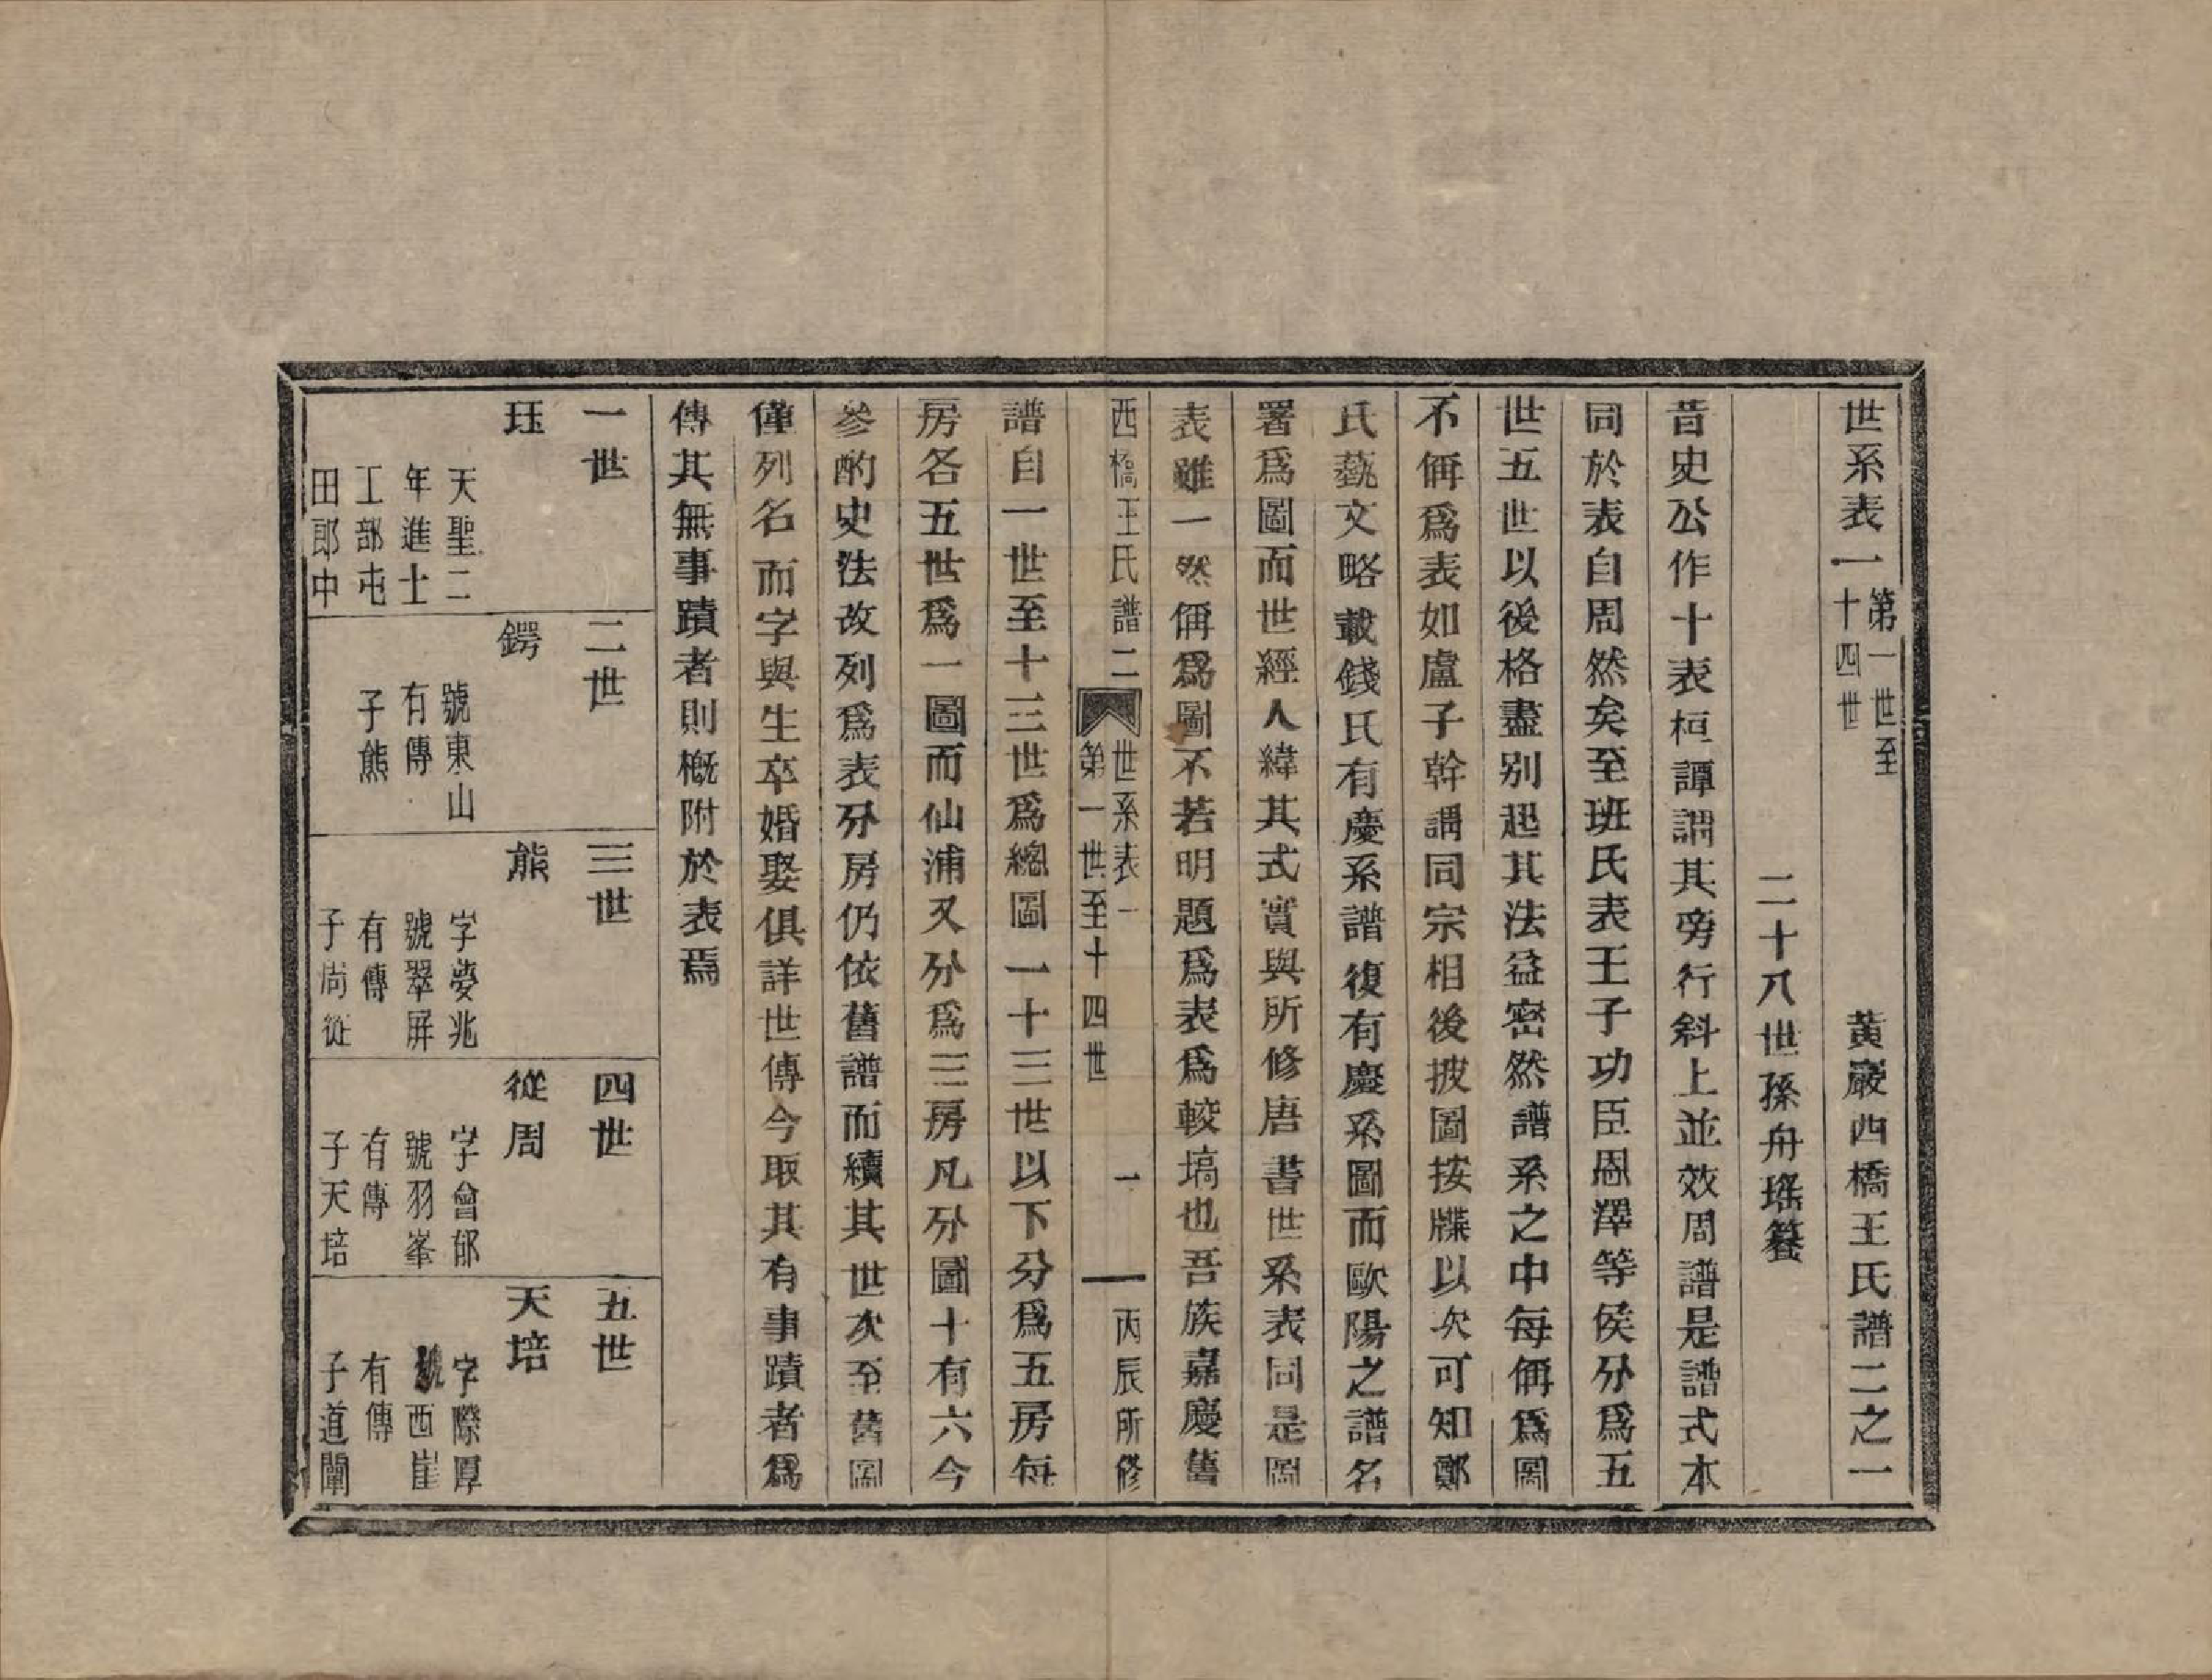 世系表一 第一世至十四世 黃巖西橋王氏譜二之一
二十八世孫舟瑤簒
昔史公作十表桓譚謂其旁行斜上並效周譜是譜式本
同於表自周然矣至班氏表王子功臣恩澤等侯分爲五
世五世以後格盡别起其法益密然譜系之中每偁爲圖
不偁爲表如盧子幹謂同宗相後披圖按牒以次可知鄭
氏藝文略載錢氏有慶系譜復有慶系圖而歐陽之譜名
署爲圖而世經人緯其式實與所修唐書世系表同是圖
表雖一然偁爲圖不若明題爲表爲較塙也吾族嘉慶舊
西橋王氏譜二 世系表一 第一世至十四世 一 丙辰所修
譜自一世至十三世爲總圖一十三世以下分爲五房每
房各五世爲一圖而仙浦又分爲三房凡分圖十有六今
參酌史法改列爲表分房仍依舊譜而續其世次至舊圖
僅列名而字與生卒婚娶俱詳世傳今取其有事蹟者爲
傳其無事蹟者則概附於表焉
一世 二世 三世 四世 五世
珏
天聖二
年進士
工部屯
田郎中
鍔
號東山
有傳
子熊
熊
字夢兆
號翠屏
有傳
子尚從
從周
字會郁
號羽峯
有傳
子天培
天培
字際厚
號西崖
有傳
子道閫